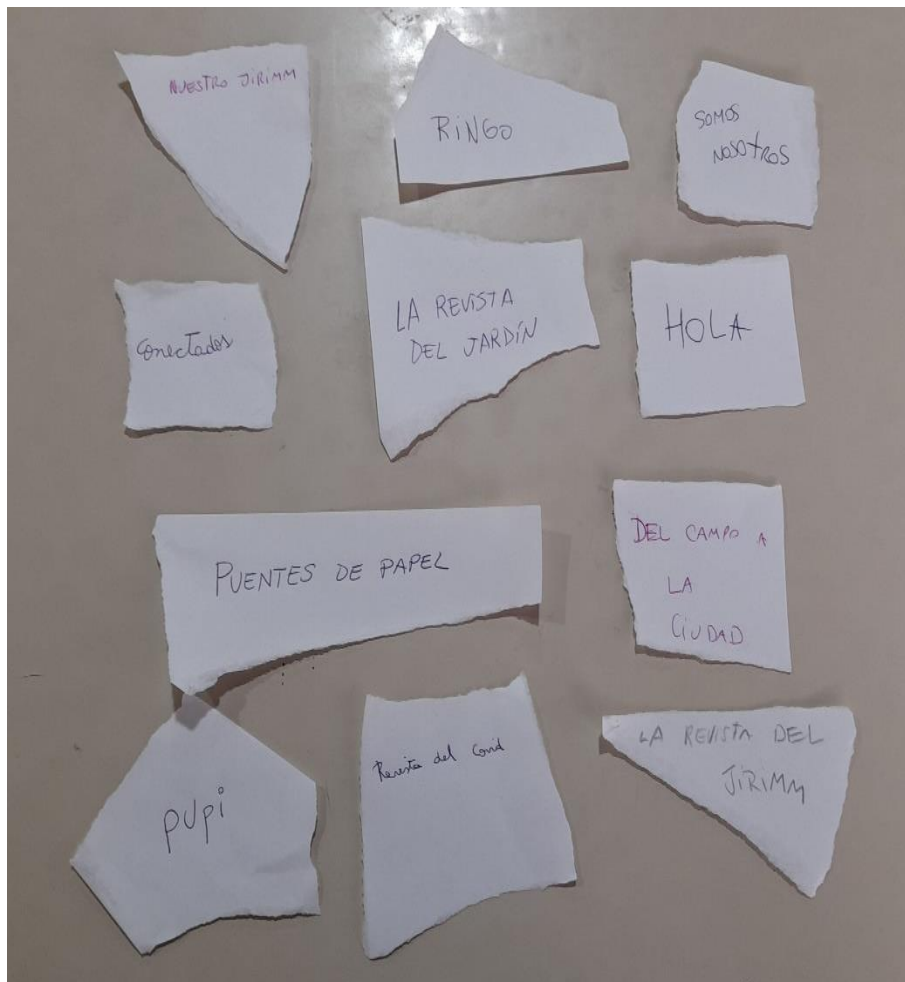 NUESTRO JIRIMM
RINGO
SOMOS
NOSOTROS
Conectados
LA REVISTA
DEL JARDÍN
HOLA
PUENTES DE PAPEL
DEL CAMPO A
LA
CIUDAD
pUpi
Revista del Covid
LA REVISTA DEL
JIRIMM